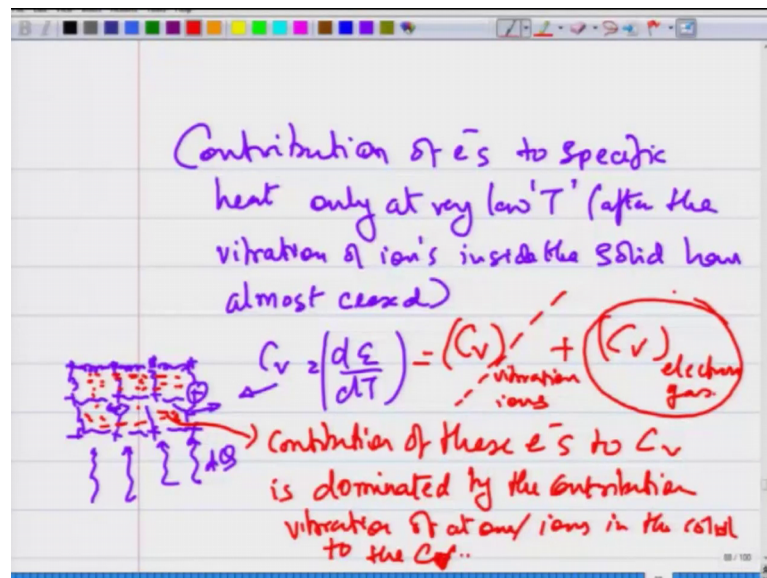 Contribution of ēs to specific
heat only at very low 'T' (after the
vibration of ion's inside the solid have
almost ceased)
Cv = (dε/dT) = (Cv) vibration ions + (Cv) electron gas.
+
dQ
Contribution of these ēs to Cv
is dominated by the contribution
vibration of atoms/ions in the solid
to the Cv..
88 / 100